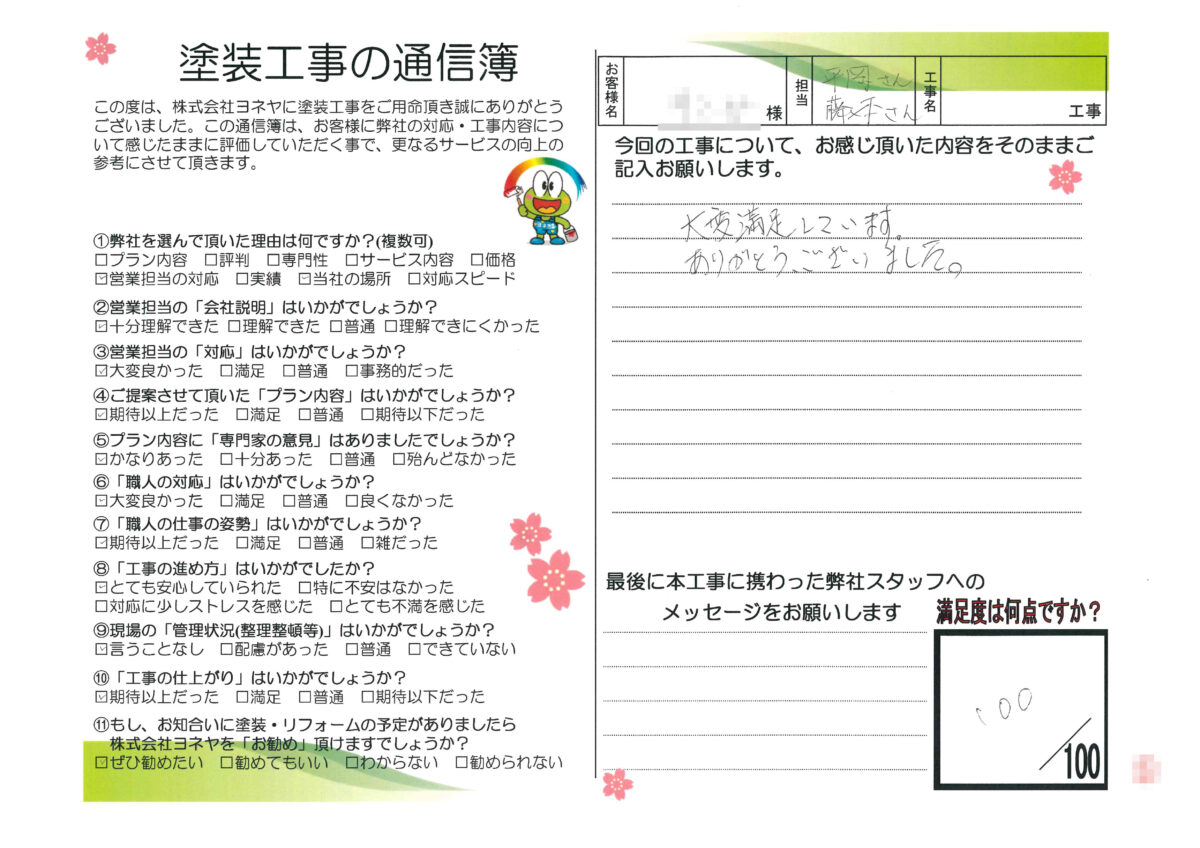 塗装工事の通信簿
この度は、株式会社ヨネヤに塗装工事をご用命頂き誠にありがとう
ございました。この通信簿は、お客様に弊社の対応・工事内容につ
いて感じたままに評価していただく事で、更なるサービスの向上の
参考にさせて頂きます。
①弊社を選んで頂いた理由は何ですか？(複数可)
□プラン内容 □評判 □専門性 □サービス内容 □価格
☑営業担当の対応 □実績 ☑当社の場所 □対応スピード
②営業担当の「会社説明」はいかがでしょうか？
☑十分理解できた □理解できた □普通 □理解できにくかった
③営業担当の「対応」はいかがでしょうか？
☑大変良かった □満足 □普通 □事務的だった
④ご提案させて頂いた「プラン内容」はいかがでしょうか？
☑期待以上だった □満足 □普通 □期待以下だった
⑤プラン内容に「専門家の意見」はありましたでしょうか？
☑かなりあった □十分あった □普通 □殆んどなかった
⑥「職人の対応」はいかがでしょうか？
☑大変良かった □満足 □普通 □良くなかった
⑦「職人の仕事の姿勢」はいかがでしょうか？
☑期待以上だった □満足 □普通 □雑だった
⑧「工事の進め方」はいかがでしたか？
☑とても安心していられた □特に不安はなかった
□対応に少しストレスを感じた □とても不満を感じた
⑨現場の「管理状況(整理整頓等)」はいかがでしょうか？
☑言うことなし □配慮があった □普通 □できていない
⑩「工事の仕上がり」はいかがでしょうか？
☑期待以上だった □満足 □普通 □期待以下だった
⑪もし、お知合いに塗装・リフォームの予定がありましたら
株式会社ヨネヤを「お勧め」頂けますでしょうか？
☑ぜひ勧めたい □勧めてもいい □わからない □勧められない
お客様名
様
担当
さん
藤本さん
工事名
工事
今回の工事について、お感じ頂いた内容をそのままご
記入お願いします。
大変満足しています。
ありがとうございました。
最後に本工事に携わった弊社スタッフへの
メッセージをお願いします
満足度は何点ですか？
100
/100